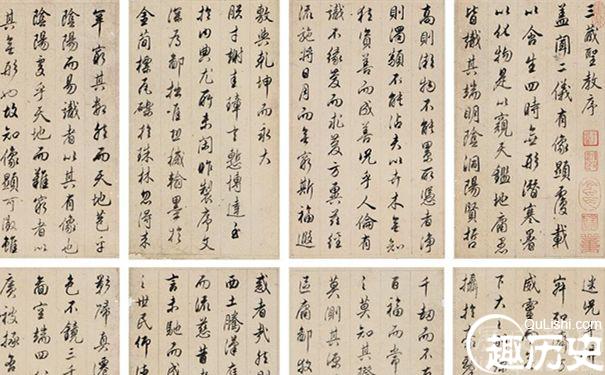 三藏聖教序
蓋聞二儀有像顯覆載
以含生四時無形潛寒暑
以化物是以窺天鑑地庸愚
皆識其端明陰洞陽賢哲
高則凝物不能累所憑者淨
則濁類不能沾夫以卉木無知
猶資善而成善況乎人倫有
識不緣慶而求慶方冀茲經
流施將日月而無窮斯福遐
敷與乾坤而永大
朕才謝珪璋言慙博達至
於內典尤所未閑昨製序文
深為鄙拙唯恐穢翰墨於
金簡標瓦礫於珠林忽得來
罕窮其數然而天地苞乎
陰陽而易識者以其有像也
陰陽處乎天地而難窮者以
其無形也故知像顯可徵雖
迷況乎
威靈
下大之
攝於
千劫而不
百福而長
之莫知其際
莫測其源
區庸鄙投
惑者哉然則
西土騰漢庭
而流慈昔者
言未馳而成
之世民仰德
影歸真遷
色不鏡三千
圖空端四八
廣被拯含
QuLiShi.com
趣历史